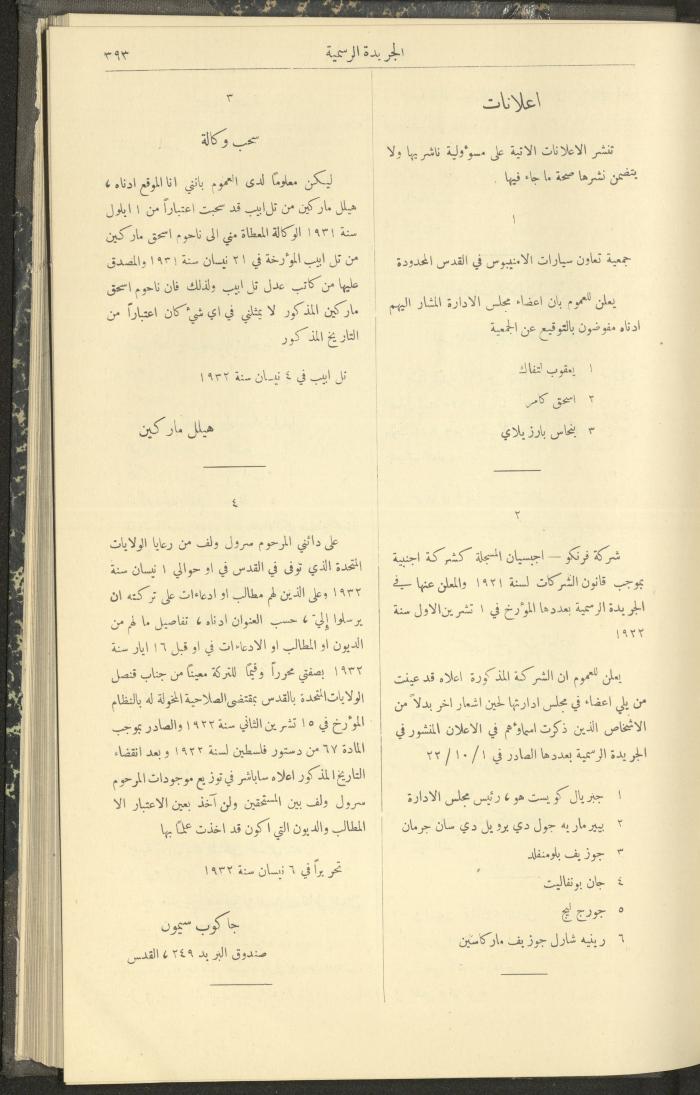 الجريدة الرسمية
٣٩٣
اعلانات
تنشر الاعلانات الاتية على مسوٴولية ناشريها ولا
يتضمن نشرها صحة ما جاء فيها .
١
جمعية تعاون سيارات الامنيبوس في القدس المحدودة
يعلن للعموم بان اعضاء مجلس الادارة المشار اليهم
ادناه مفوضون بالتوقيع عن الجمعية
١ يعقوب لتفاك
٢ اسحق كامر
٣ بنحاس بارزيلاي
٢
شركة فرنكو — اجبسيان المسجلة كشركة اجنبية
بموجب قانون الشركات لسنة ١٩٢١ والمعلن عنها في
الجريدة الرسمية بعددها الموٴرخ في ١ تشرين الاول سنة
١٩٢٢
يعلن للعموم ان الشركة المذكورة اعلاه قد عينت
من يلي اعضاء في مجلس ادارتها لحين اشعار اخر بدلاً من
الاشخاص الذين ذكرت اسماوٴهم في الاعلان المنشور في
الجريدة الرسمية بعددها الصادر في ١ / ١٠ / ٢٢
١ جبريال كويست هو، رئيس مجلس الادارة
٢ بيير ماريه جول دي برويل دي سان جرمان
٣ جوزيف بلومنفلد
٤ جان بونفاليت
٥ جورج ليج
٦ رينيه شارل جوزيف ماركاسين
٣
سحب وكالة
ليكن معلومًا لدى العموم بانني انا الموقع ادناه،
هيلل ماركين من تل ابيب قد سحبت اعتباراً من ١ ايلول
سنة ١٩٣١ الوكالة المعطاة مني الى ناحوم اسحق ماركين
من تل ابيب الموٴرخة في ٢١ نيسان سنة ١٩٣١ والمصدق
عليها من كاتب عدل تل ابيب ولذلك فان ناحوم اسحق
ماركين المذكور لا يمثلني في اي شيٴ كان اعتباراً من
التاريخ المذكور
تل ابيب في ٤ نيسان سنة ١٩٣٢
هيلل ماركين
٤
على دائني المرحوم سرول ولف من رعايا الولايات
المتحدة الذي توفى في القدس في او حوالي ١ نيسان سنة
١٩٣٢ وعلى الذين لهم مطالب او ادعاءات على تركته ان
يرسلوا إليّ، حسب العنوان ادناه، تفاصيل ما لهم من
الديون او المطالب او الادعاءات في او قبل ١٦ ايار سنة
١٩٣٢ بصفتي محرراً وقيمًا للتركة معينًا من جناب قنصل
الولايات المتحدة بالقدس بمقتضى الصلاحية المخولة له بالنظام
الموٴرخ في ١٥ تشرين الثاني سنة ١٩٢٢ والصادر بموجب
المادة ٦٧ من دستور فلسطين لسنة ١٩٢٢ وبعد انقضاء
التاريخ المذكور اعلاه ساباشر في توزيع موجودات المرحوم
سرول ولف بين المستحقين ولن آخذ بعين الاعتبار الا
المطالب والديون التي اكون قد اخذت علمًا بها
تحريراً في ٦ نيسان سنة ١٩٣٢
جاكوب سيمون
صندوق البريد ٢٤٩، القدس